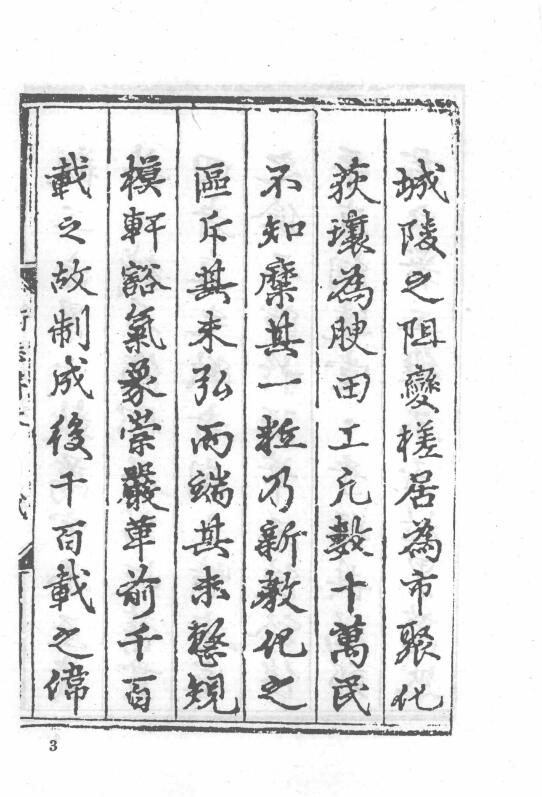 城陵之阻變槎居為市聚化
荻壤為腴田工亢數十萬民
不知縻其一粒乃新教化之
區斥其未弘而端其未整規
模軒豁氣象崇嚴革前千百
載之故制成後千百載之偉
3